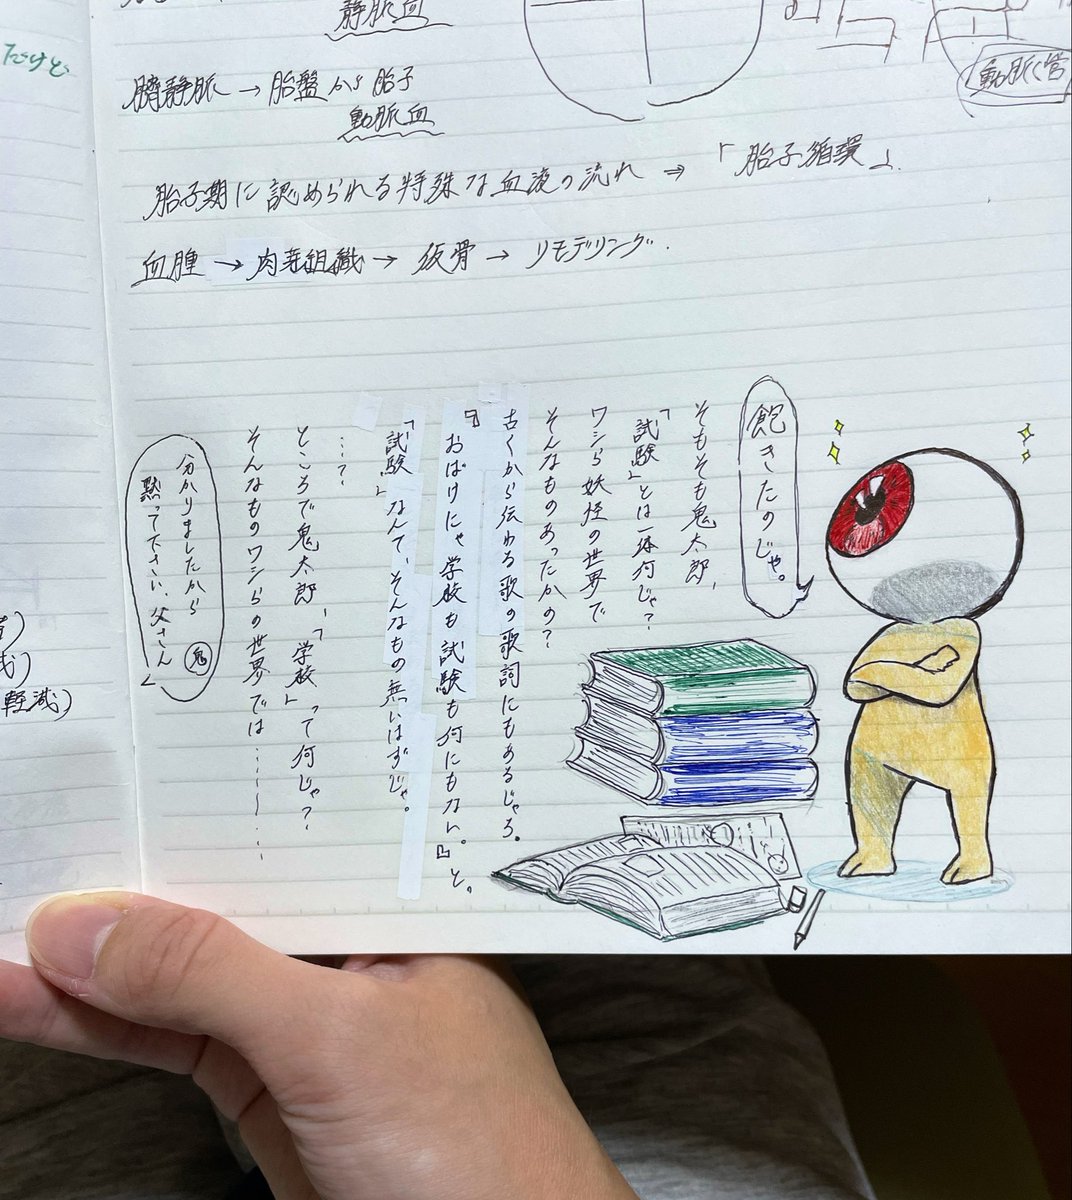 だけど
静脈血
臍静脈→胎盤から胎子
動脈血
動脈管
胎子期に認められる特殊な血液の流れ ⇒ 「胎子循環」.
血腫→肉芽組織→仮骨→リモデリング.
飽きたのじゃ。
そもそも鬼太郎、
「試験」とは一体何じゃ？
ワシら妖怪の世界で
そんなものあったかの？
古くから伝わる歌の歌詞にもあるじゃろ。
『おばけにゃ学校も試験も何にもない。』と。
「試験」なんて、そんなもの無いはずじゃ。
…？
ところで鬼太郎、「学校」って何じゃ？
そんなものワシらの世界では………
分かりましたから
黙って下さい、父さん
鬼
軽減)